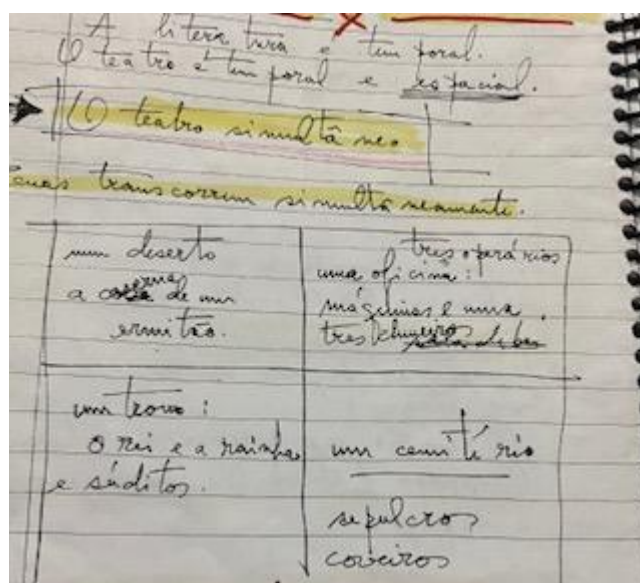 A literatura é temporal.
O teatro é temporal e espacial.
O teatro simultâneo
cenas transcorrem simultâneamente.
um deserto
a de um
ermitão.
três operários
uma oficina:
máquinas e uma
tres chuveiros
um trono:
o rei e a rainha
e súditos.
um cemitério
sepulcros
coveiros